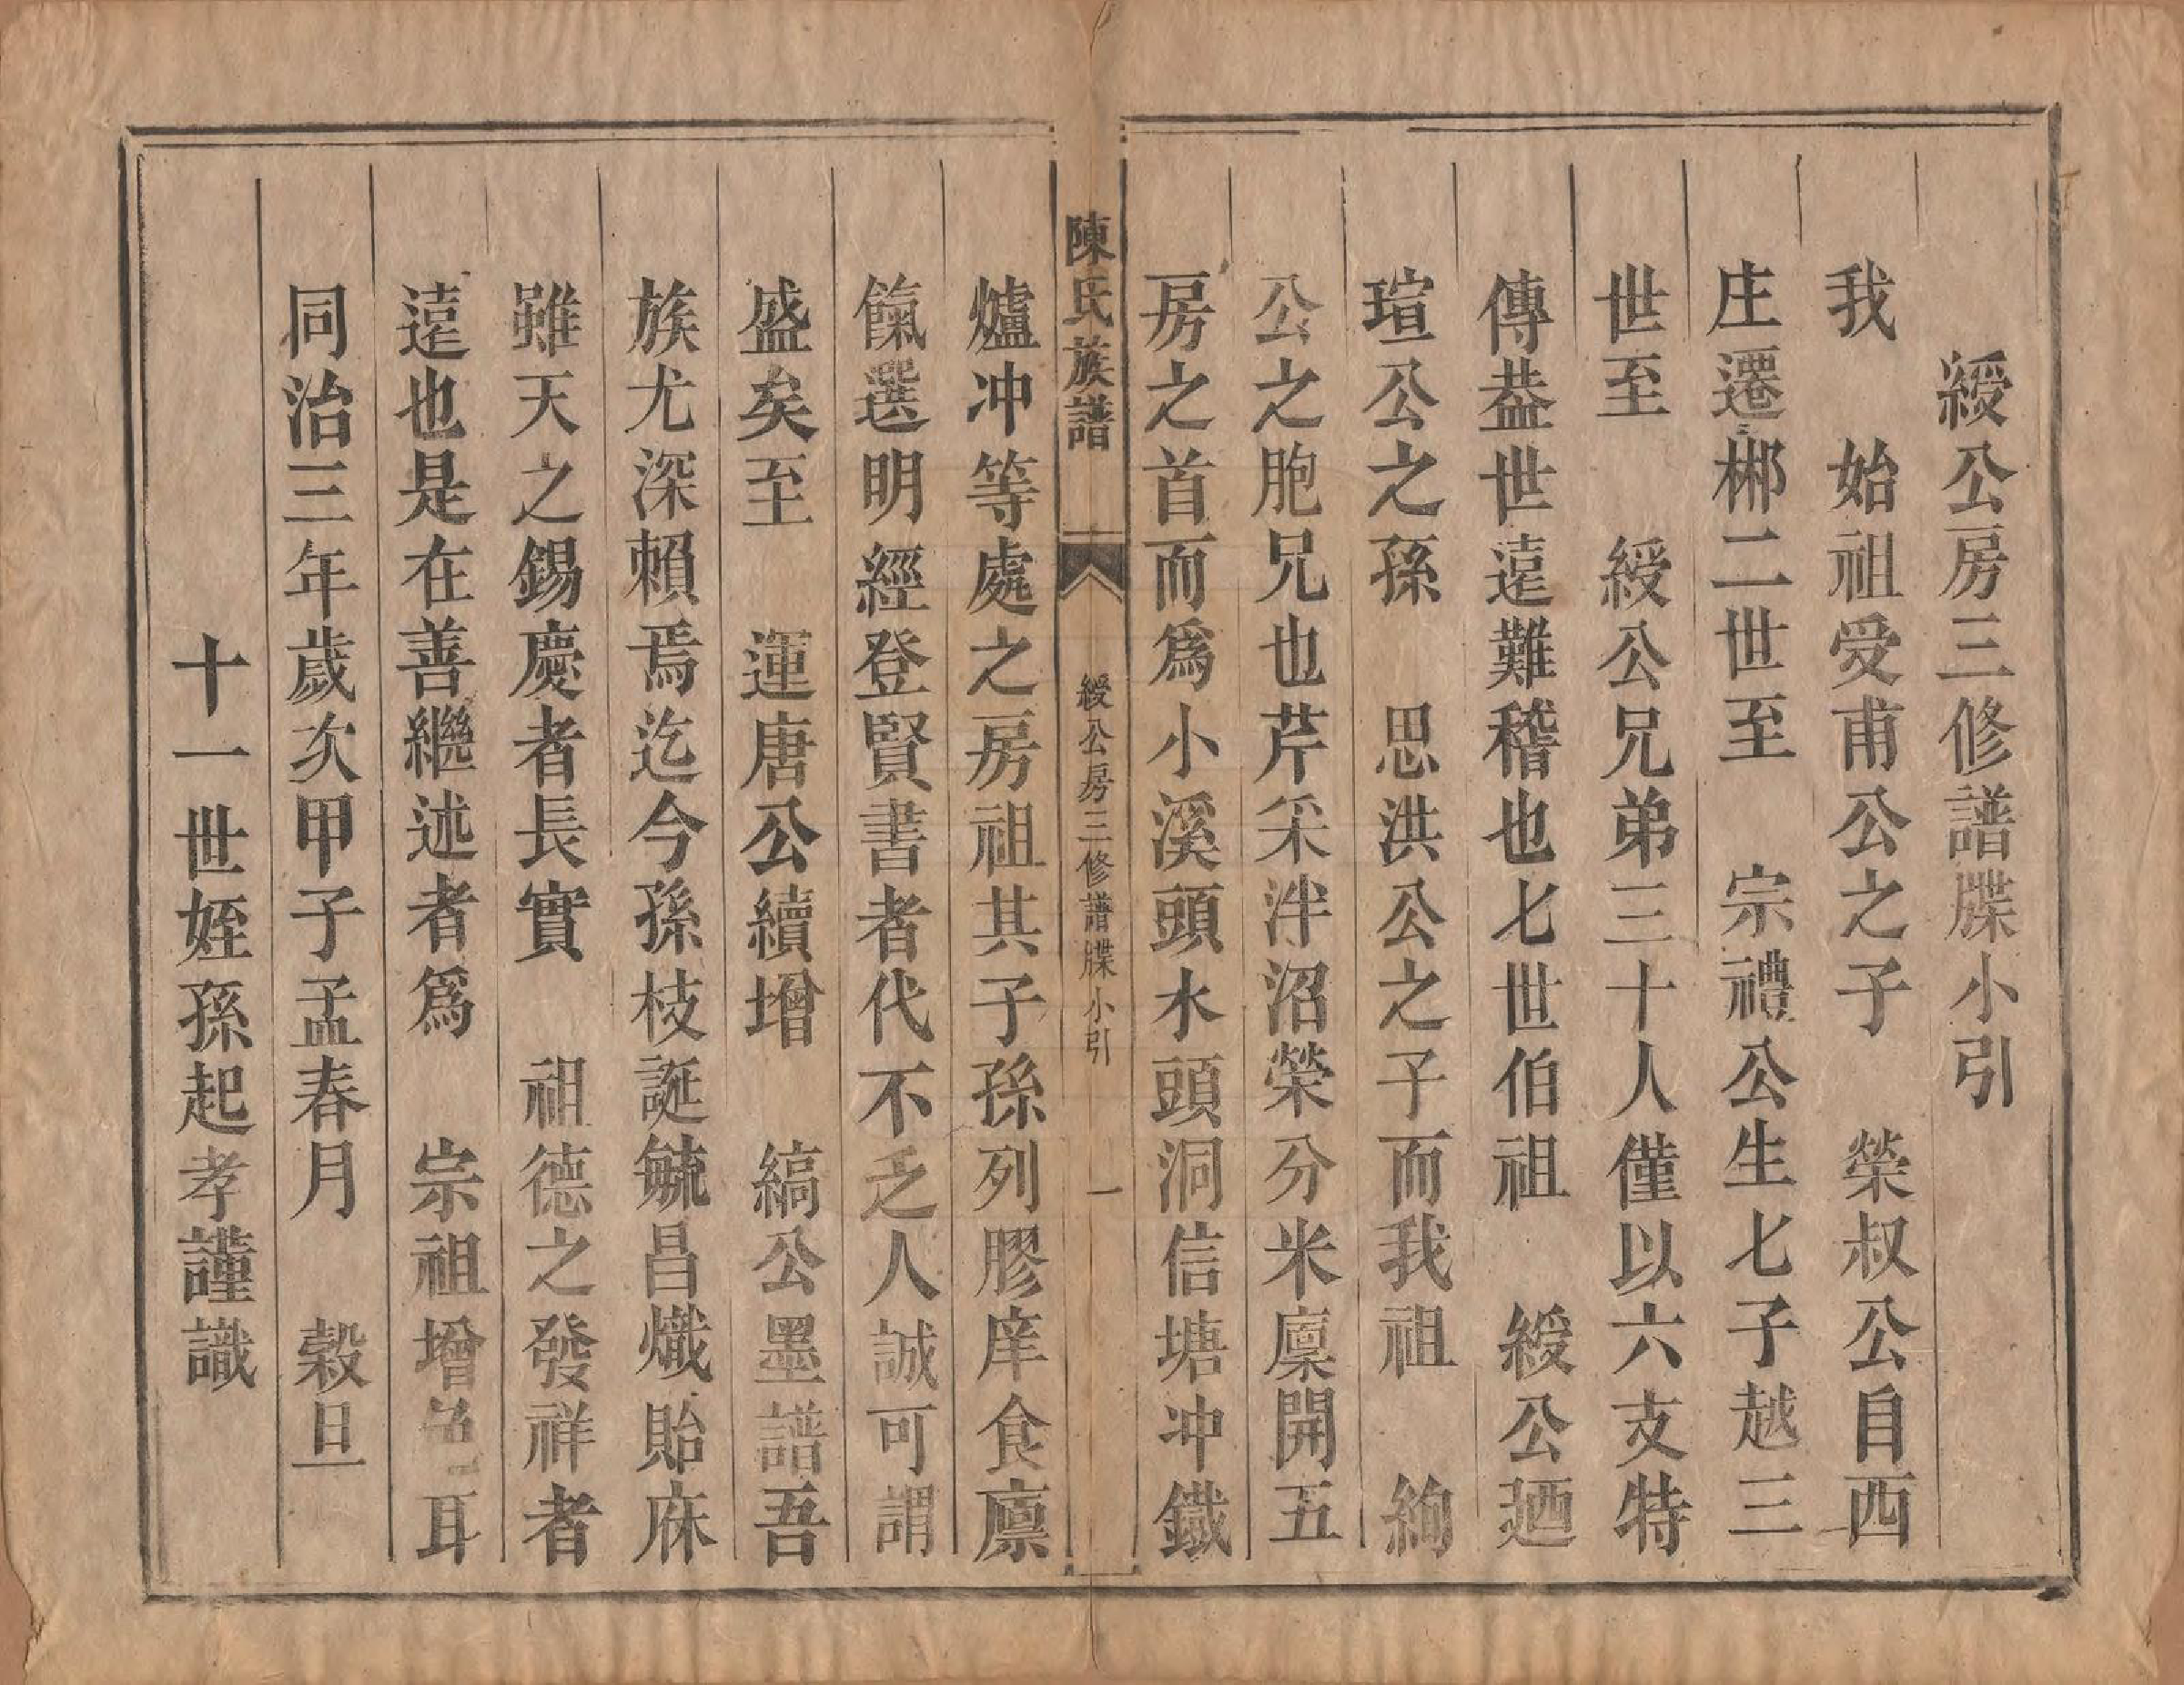 綬公房三修譜牒小引
我 始祖受甫公之子 榮叔公自西
庄遷郴二世至 宗禮公生七子越三
世至 綬公兄弟三十人僅以六支特
傳葢世遠難稽也七世伯祖 綬公廼
瑄公之孫 思洪公之子而我祖 絢
公之胞兄也芹采泮沼榮分米廩開五
房之首而爲小溪頭水頭洞信塘冲鐵
陳氏族譜 綬公房三修譜牒小引 一
爐冲等處之房祖其子孫列膠庠食廩
餼選明經登賢書者代不乏人誠可謂
盛矣至 運唐公續增 縞公墨譜吾
族尤深賴焉迄今孫枝誕毓昌熾貽庥
雖天之錫慶者長實 祖德之發祥者
遠也是在善繼述者爲 宗祖增色耳
同治三年歲次甲子孟春月 穀旦
十一世姪孫起孝謹識